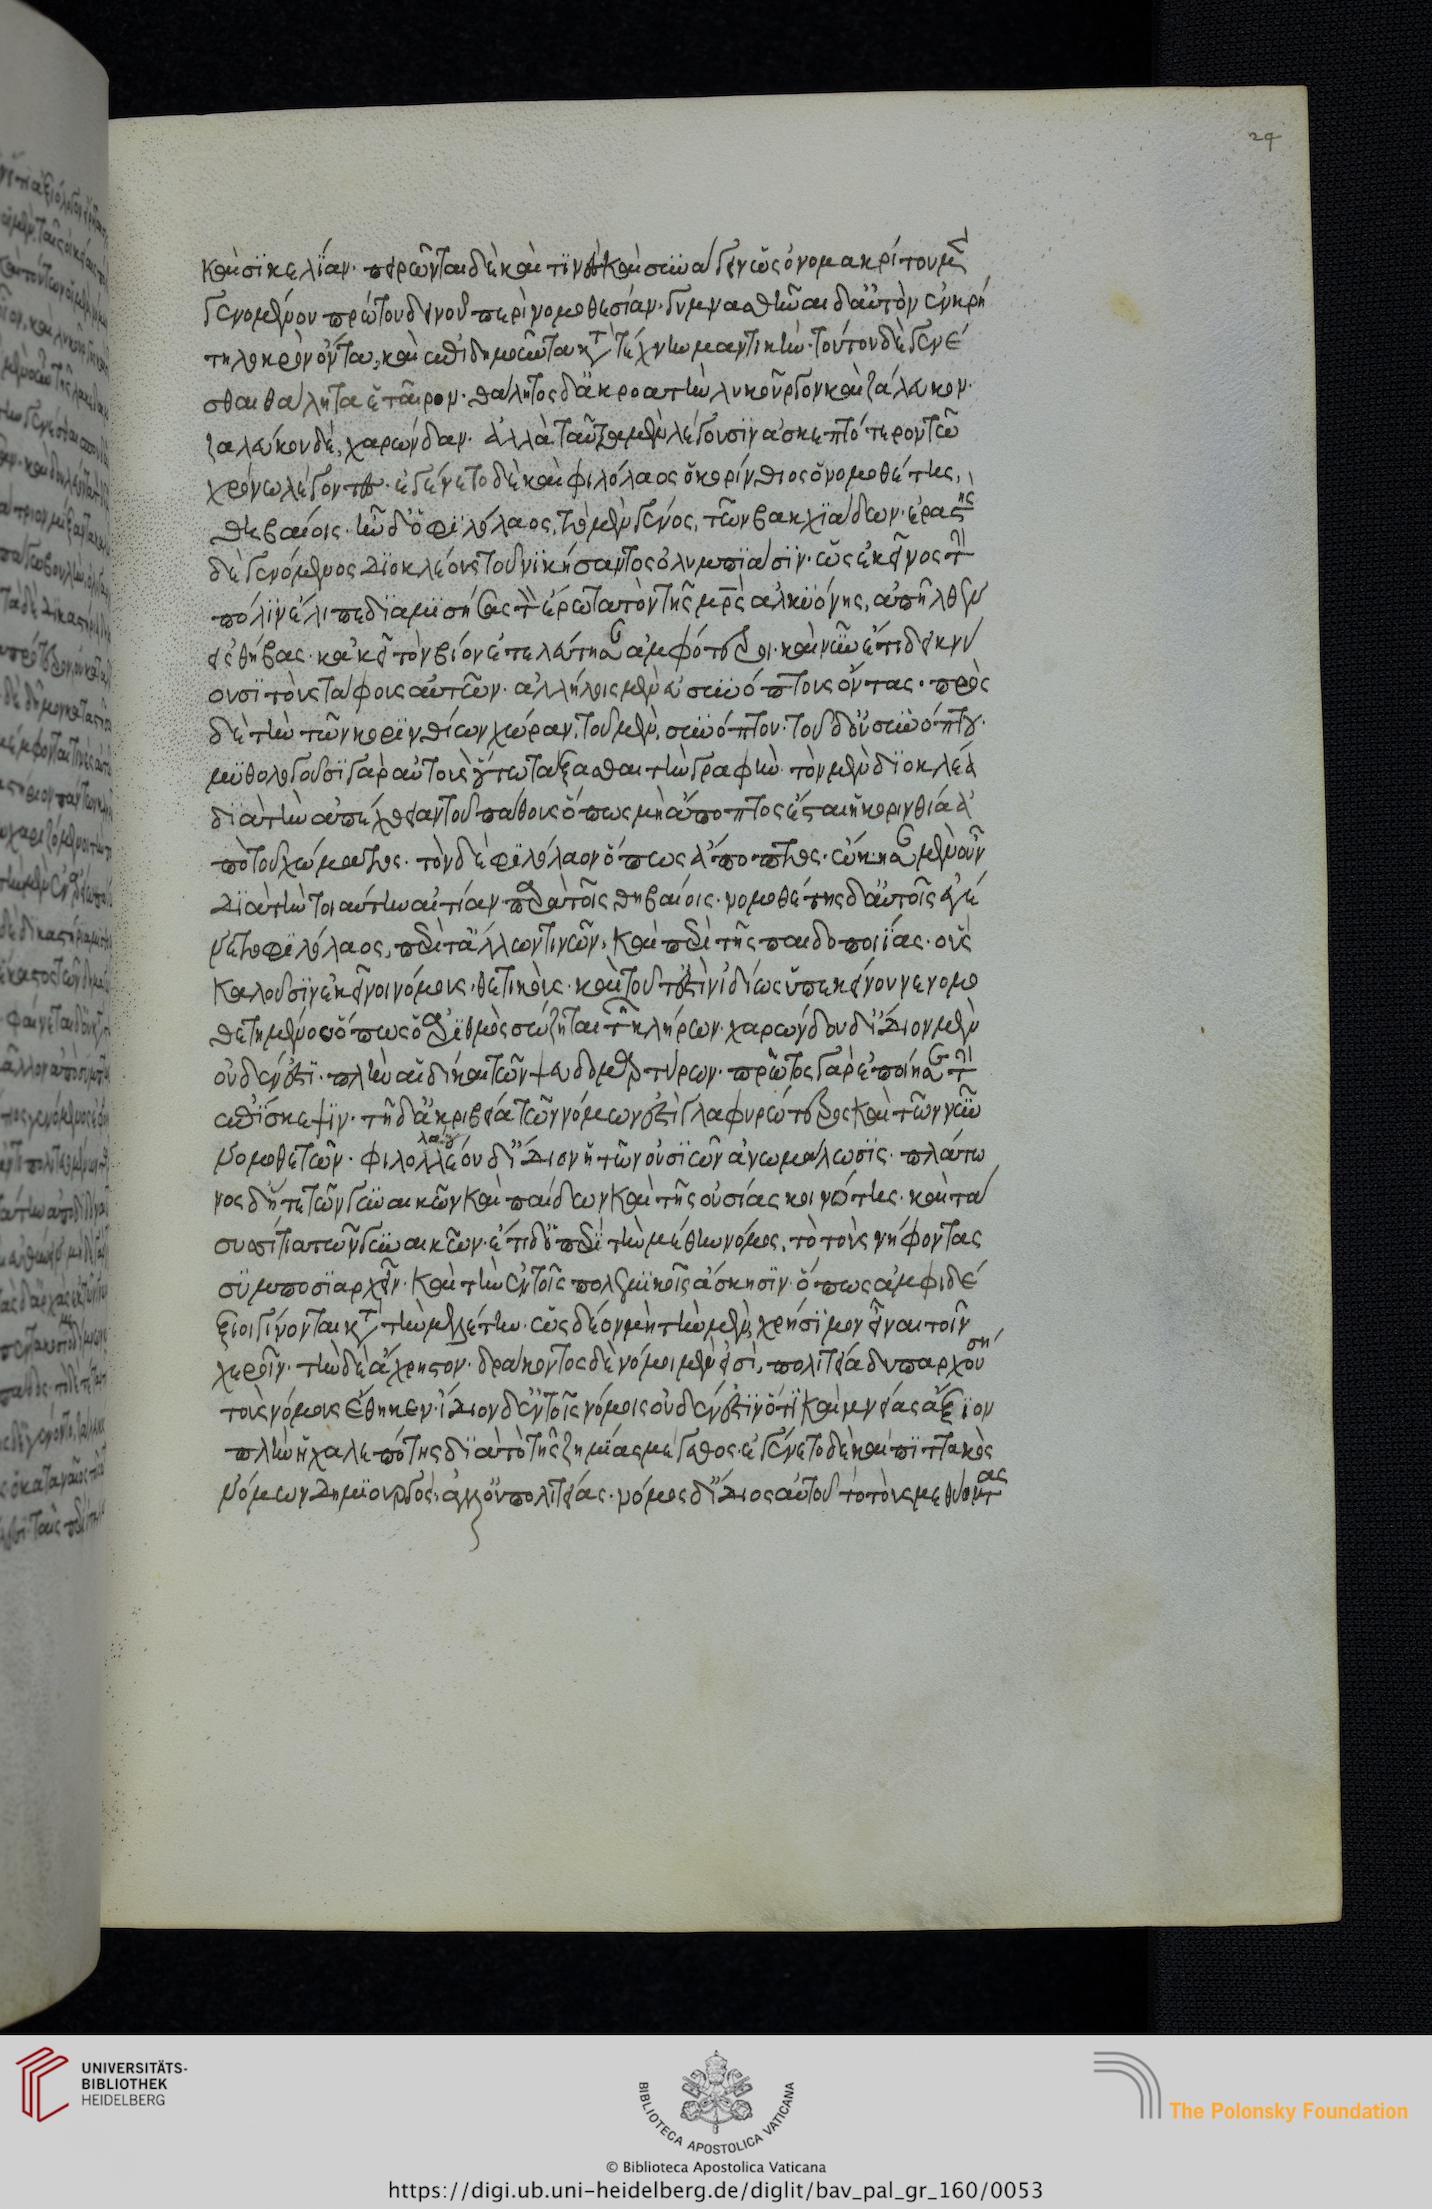 24
καὶ σϊκελίαν· πειρῶνται δὲ καὶ τϊνὲς καὶ συνάγειν ὡς ὀνομακρίτου μὲν
γενομένου πρώτου δεινοῦ περὶ νομοθεσίαν· γυμνασθῆναι δ' αὐτὸν ἐν κρή
τη λοκρὸν ὄντα, καὶ ἐπιδημοῦντα κατὰ τέχνην μαντικήν· τούτου δὲ γενέ
σθαι θάλητα ἑταῖρον· θάλητος δ' ἀκροατὴν λυκοῦργον καὶ ζάλευκον·
ζαλεύκου δὲ, χαρώνδαν· ἀλλὰ ταῦτα μὲν λέγουσϊν ἀσκεπτότερον τῶ
χρόνω λέγοντες· ἐγένετο δὲ καὶ φιλόλαος ὁ κορίνθιος ὁ νομοθέτης,
θηβαίοις· ἦν δ' ὁ φϊλόλαος, τὸ μὲν γένος, τῶν βακχϊαδων· ἐραστὴς
δὲ γενόμενος διοκλέους τοῦ νϊκήσαντος ὀλυμπϊάσϊν· ὡς ἐκεῖνος τὴν
πόλϊν ἔλιπε δϊαμϊσήσας τὸν ἔρωτα τὸν τῆς μρς ἀλκϋόνης, ἀπῆλθεν
εἰς θήβας· κἀκεῖ τὸν βίον ἐτελεύτησαν ἀμφότεροι· καὶ νῦν ἔτι δεικνύ
ουσϊ τοὺς τάφους αὐτῶν· ἀλλήλοις μὲν εὐσυνόπτους ὄντας· πρὸς
δὲ τὴν τῶν κορϊνθίων χώραν, τοῦ μὲν, συνόπτου· τοῦ δ' οὐ συνόπτου·
μϋθολογοῦσϊ γὰρ αὐτοὺς οὕτω τάξασθαι τὴν γραφὴν· τὸν μὲν δϊοκλέα
δϊὰ τὴν ἀπέχθειαν τοῦ πάθους ὅπως μὴ ἄποπτος ἔσται ἡ κορινθία ἀ
πὸ τοῦ χώματος· τὸν δὲ φϊλόλαον ὅπως ἄποπτος· ᾤκησαν μὲν οὖν
διὰ τὴν τοιαύτην αἰτίαν παρὰ τοῖς θηβαίοις· νομοθέτης δ' αὐτοῖς ἐγέ
νετο φϊλόλαος, περί τ' ἄλλων τινῶν, καὶ περὶ τῆς παιδοποιΐας· οὓς
καλοῦσϊν ἐκεῖνοι νόμους θετικοὺς· καὶ τοῦτ' ἐστὶν ἰδίως ὑπ' ἐκείνου νενομο
θετημένον ὅπως ὁ ἀρϊθμὸς σώζηται τῶν κλήρων· χαρώνδου δ' ἴδιον μὲν
οὐδέν ἐστϊ· πλὴν αἱ δίκαι τῶν ψευδομαρτύρων· πρῶτος γὰρ ἐποίησε τὴν
ἐπίσκεψϊν· τῇ δ' ἀκριβείᾳ τῶν νόμων ἐστὶ γλαφυρώτερος καὶ τῶν νῦν
νομοθετῶν· φιλολλέου δ' ἴδιον ἡ τῶν οὐσϊῶν ἀνωμάλωσϊς· πλάτω
λάου
νος δ' ἥ τε τῶν γυναικῶν καὶ παίδων καὶ τῆς οὐσίας κοινότης· καὶ τὰ
συσίτια τῶν γυναικῶν· ἔτι δ' ὁ περὶ τὴν μέθην νόμος, τὸ τοὺς νήφοντας
σϋμποσϊαρχεῖν· καὶ τὴν ἐν τοῖς πολεμϊκοῖς ἄσκησϊν· ὅπως ἀμφιδέ
ξιοι γίνονται κατὰ τὴν μελέτην· ὡς δέον μὴ τὴν μὲν χρήσϊμον εἶναι τοῖν
χεροῖν· τὴν δὲ ἄχρηστον· δράκοντος δὲ νόμοι μὲν εἰσὶ, πολιτεία δ' ὑπαρχούση
τοὺς νόμους ἔθηκεν· ἴδιον δ' ἐν τοῖς νόμοις οὐδέν ἐστϊν ὅ τϊ καὶ μνείας ἄξϊον
πλὴν ἡ χαλεπότης δϊὰ τὸ τῆς ζημίας μέγεθος· ἐγένετο δὲ καὶ πϊττακὸς
νόμων δημϊουργός, ἀλλ' οὐ πολιτείας· νόμος δ' ἴδιος αὐτοῦ τὸ τοὺς μεθύοντας
UNIVERSITÄTS-
BIBLIOTHEK
HEIDELBERG
BIBLIOTECA APOSTOLICA VATICANA
© Biblioteca Apostolica Vaticana
The Polonsky Foundation
https://digi.ub.uni-heidelberg.de/diglit/bav_pal_gr_160/0053